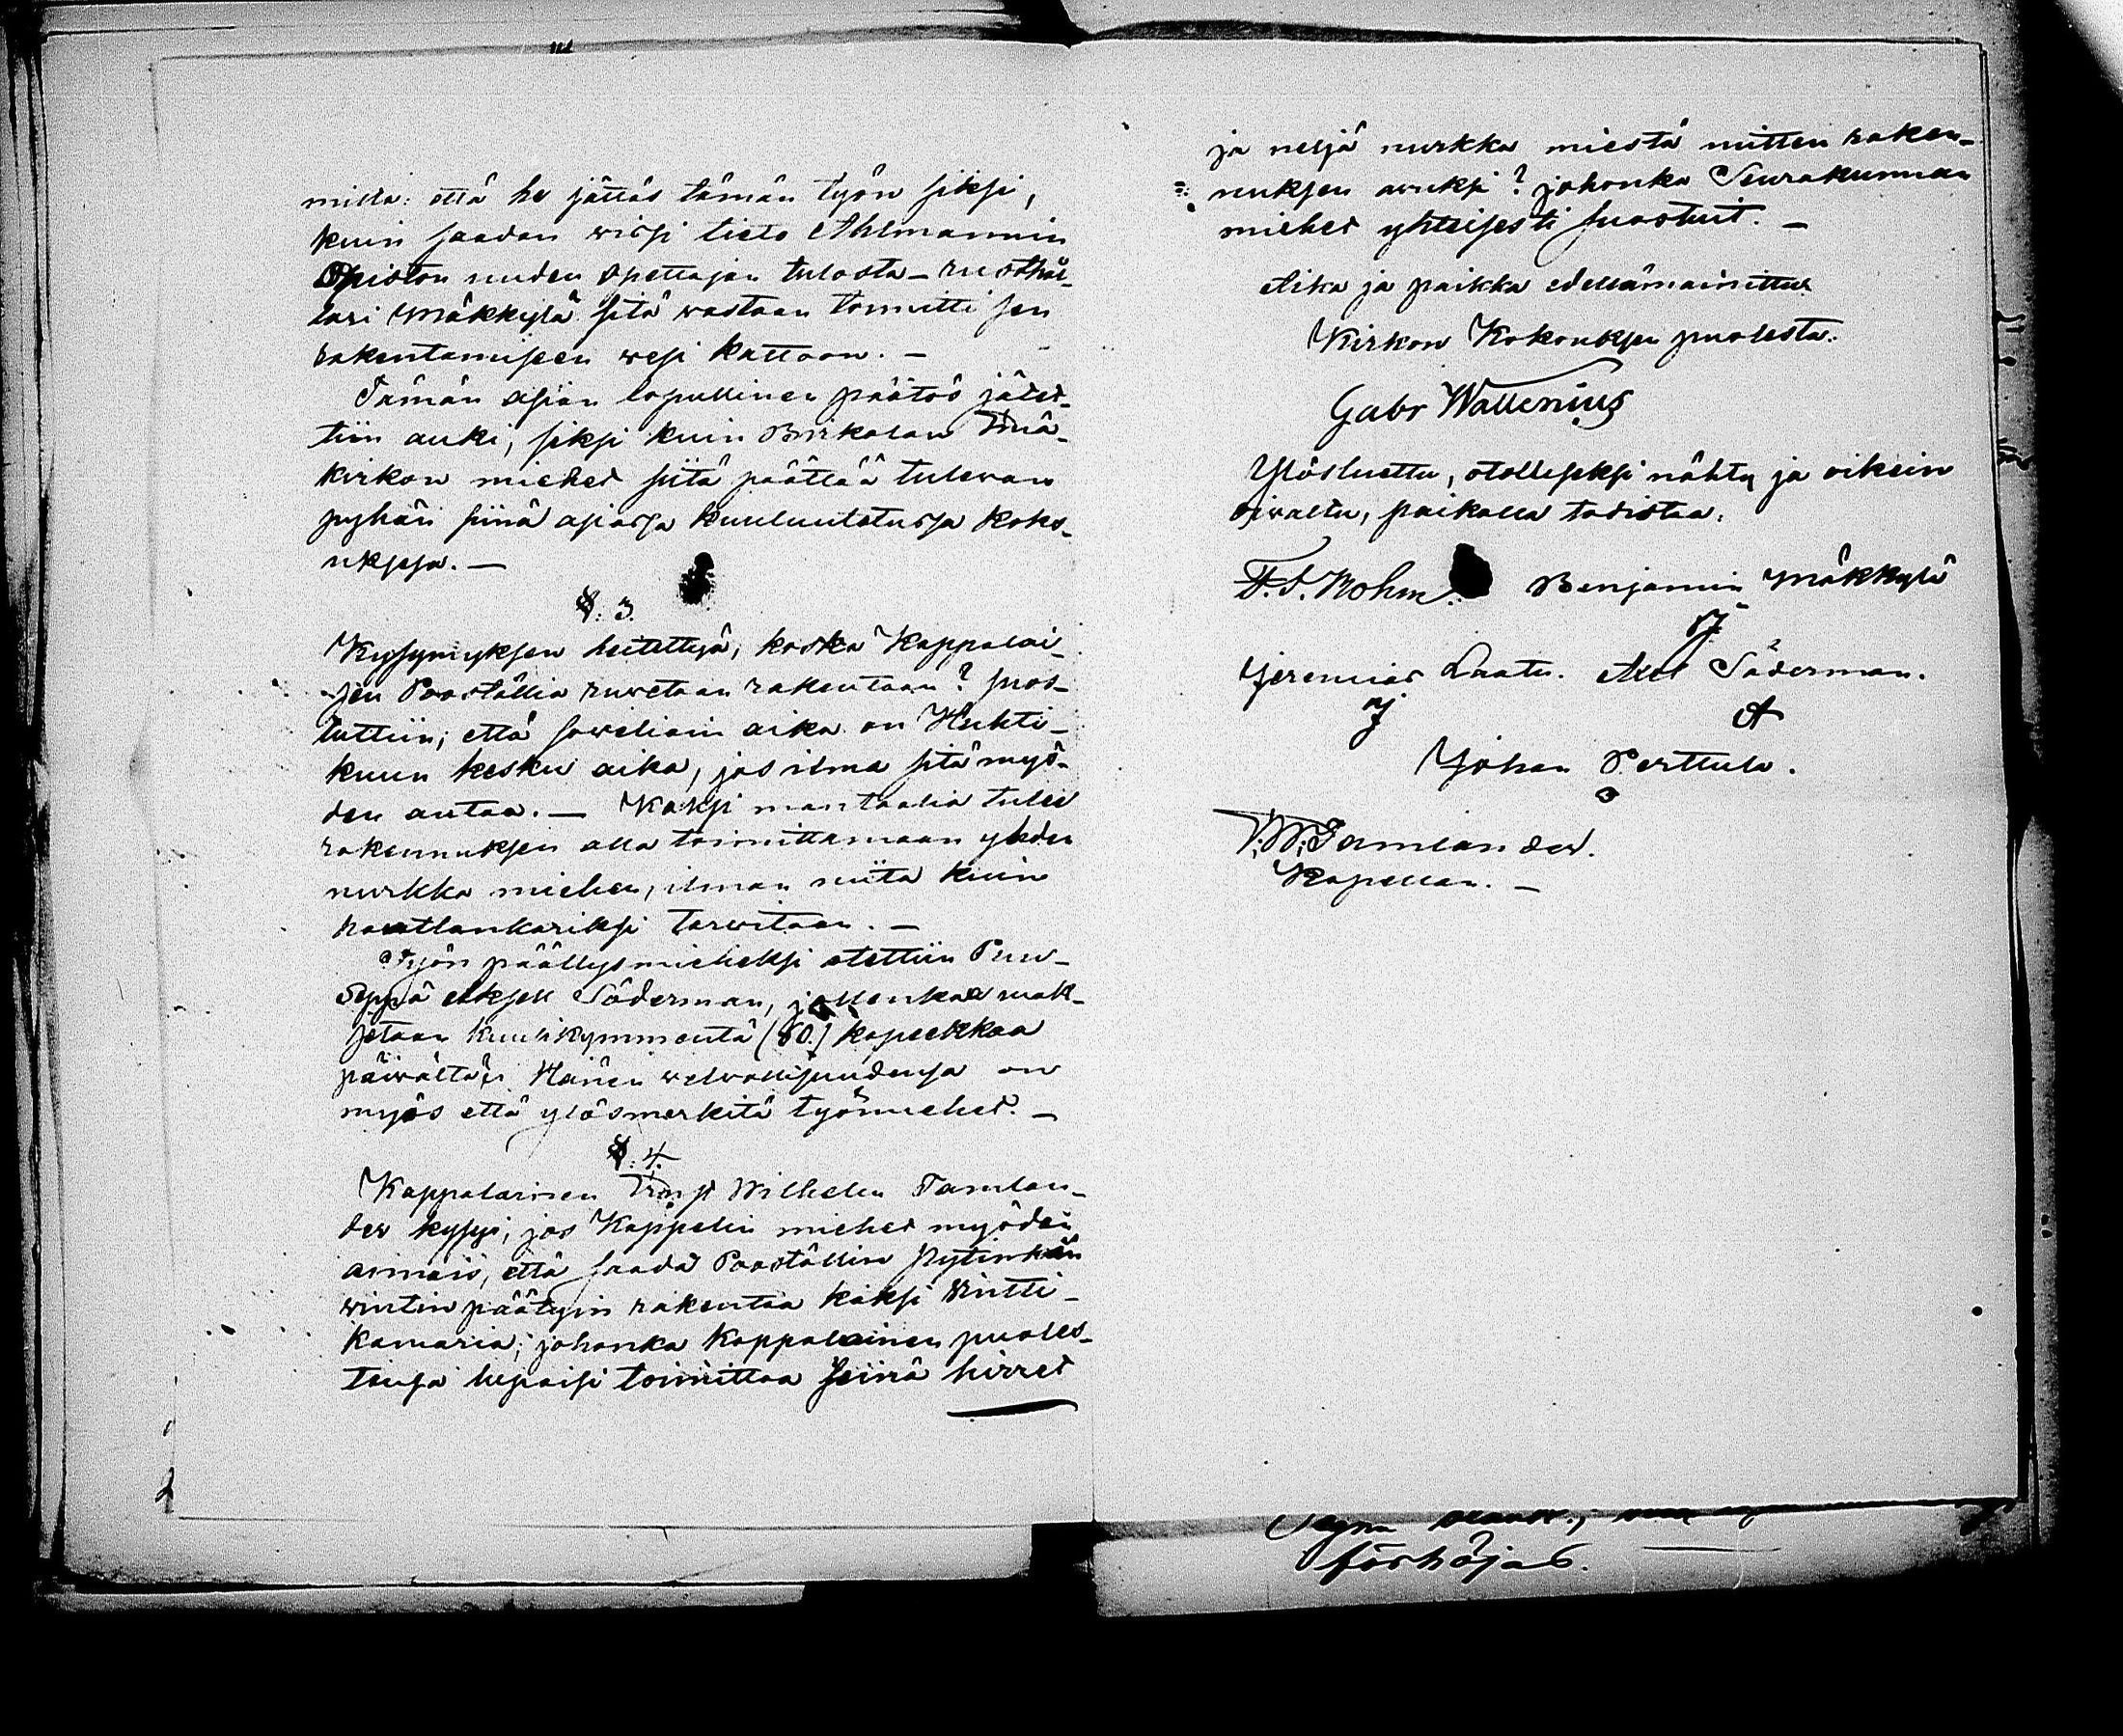 milla: että he jättäs tämän työn siksi,
kuin saadan wissi tieto Ahlmannin
Opiston uuden opettajan tulosta – rusthål-
lari Mäkkylä sitä wastaan tonutti sen
rakentamiseen wesi kattoon. –
Tämän asian lopullinen päätös jätet-
tiin auki, siksi kuin Birkalan Emä-
kirkon miehet siitä päättää tulewan
pyhän siinä asiassa kuuluutetussa koko-
uksesa. –
§. 3.
Kysymyksen heitettyä, koska Kappalai-
sen Poostöllia ruwetaan rakentaan? suos-
tuttiin, että soweliain aika on Huhti-
kuun kesku aika, jos ilma sitä myö-
den antaa. – Kaksi mantaalia tulee
rakennuksen alla toimittamaan yhden
nurkka miehen, ilman niita kuin
hantlankariksi tarwitaan. –
Työn päällysmieheksi otettiin Puu-
Seppä Aksell Söderman, jollenkaa mak-
setaan kuusikymmentä (60.) kopeekkaa
päiwältä; Hänen welvollisuudensa on
myös että ylösmerkitä työmiehet. –
§. 4.
Kappalainen Wilhelm Tamlan-
der kysyi, jos Kappelin miehet myöden
annais, että saada Poostöllin Pytinkän
wintin päätyin rakentaa kaksi Wintti-
kamaria; johonka Kappalainen puoles-
tansa lupaisi toimittaa seinä hirret
ja neljä nurkka miestä mitten raken-
nuksen awuksi? johonka Seurakunnan
miehet yhteisesti suostuit. –
Aika ja paikka edellämainittu
Kirkon Kokouksen puolesta:
Gabr Wallenius
Ylösluettu, otolliseksi nähty ja oikein
oiwaltu, paikalla todistaa.
F. J. Bohm. Benjamin Mäkkylä
Jeremias Laatu. Axel Söderman.
Johan Perttula.
W. Tamlander.
Kapellan. –
förhöjas.